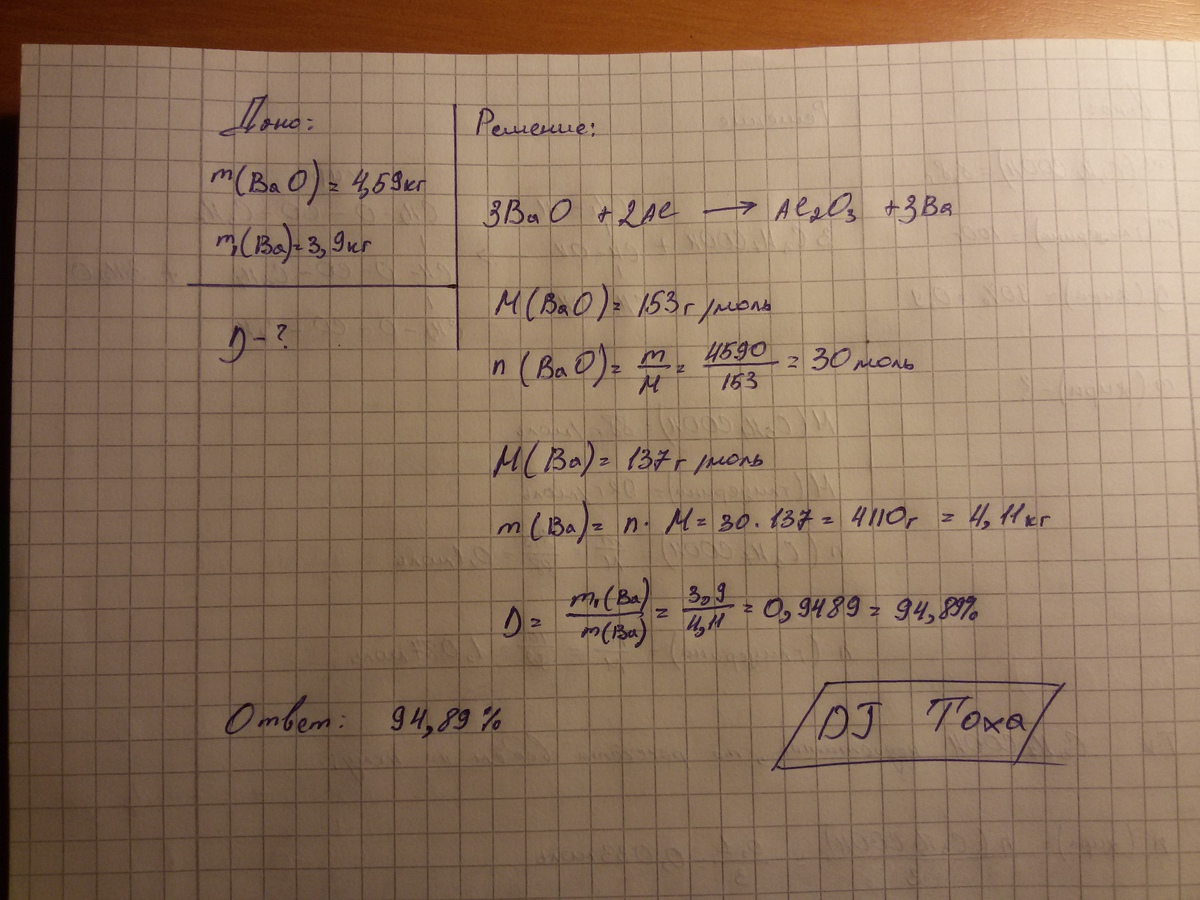 Дано:
m(BaO) = 4,59кг
m₁(Ba) = 3,9кг
D - ?
Решение:
3BaO + 2Al → Al₂O₃ + 3Ba
M(BaO) = 153г/моль
n(BaO) = m/M = 4590/153 = 30моль
M(Ba) = 137г/моль
m(Ba) = n · M = 30 · 137 = 4110г = 4,11кг
D = m₁(Ba)/m(Ba) = 3,9/4,11 = 0,9489 = 94,89%
Ответ: 94,89%
DJ Тоха